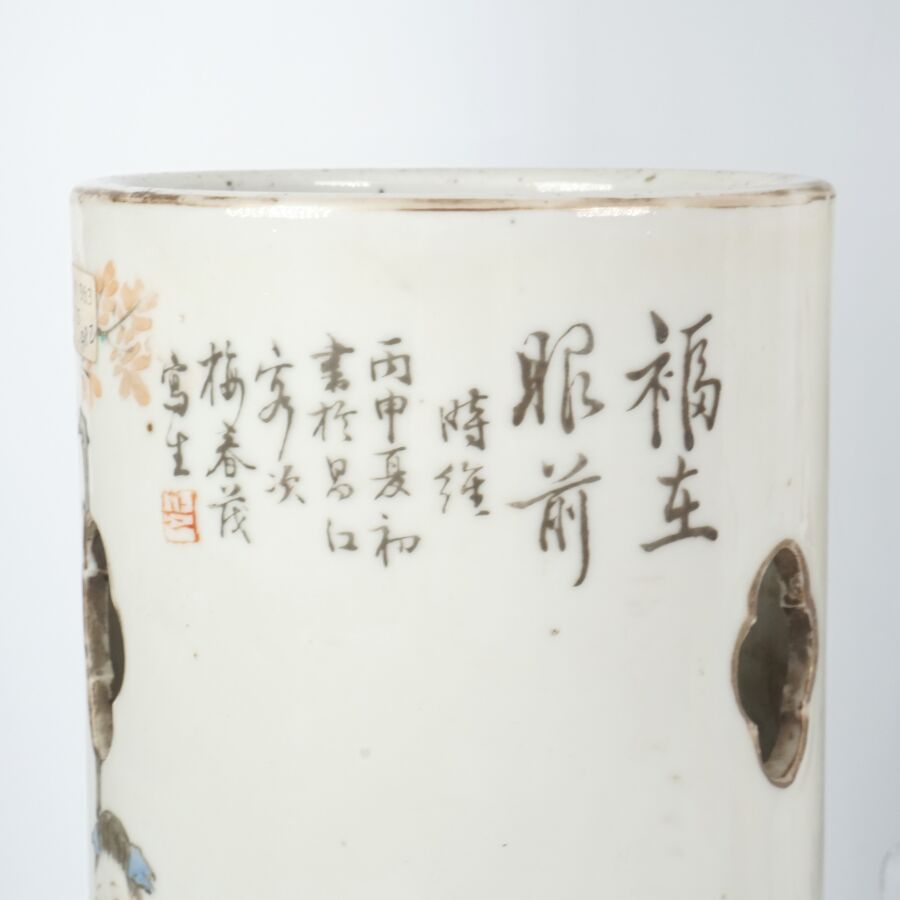 福在
眼前
時維
丙申夏初
書於昌江
客次
梅春茂
寫生